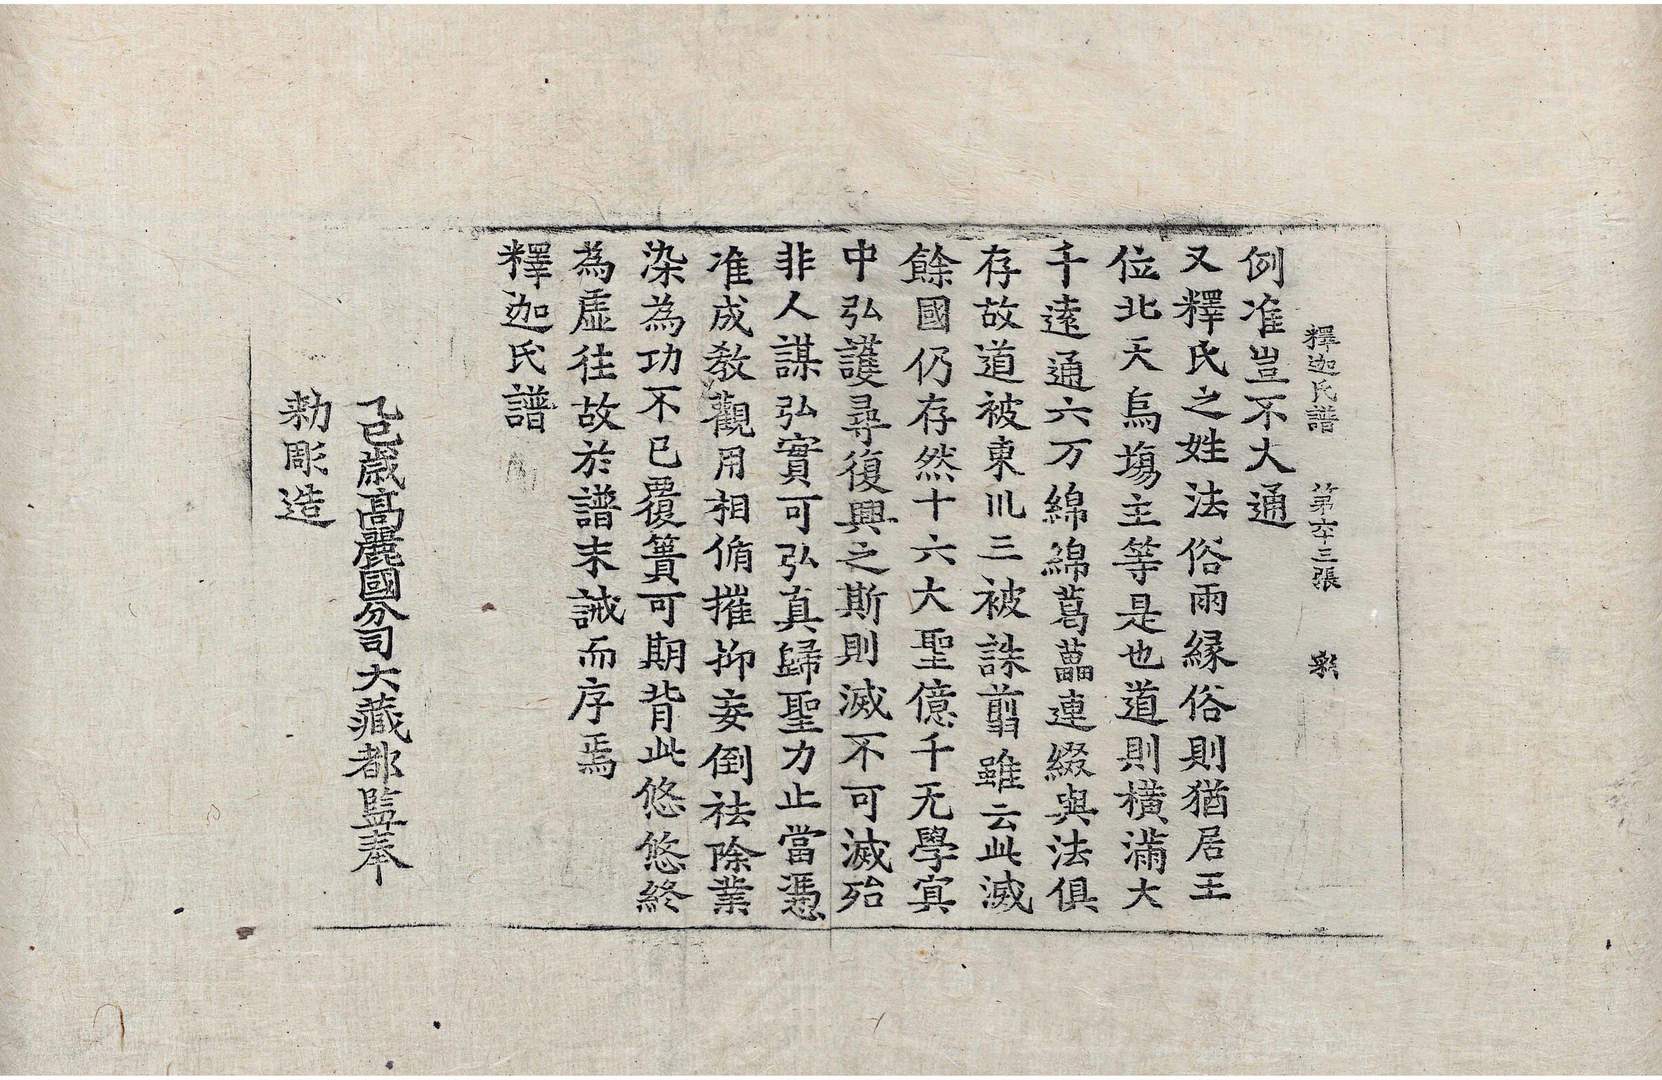 釋迦氏譜 第六十三張 彩
例准豈不大通
又釋氏之姓法俗兩緣俗則猶居王
位北天烏塲主等是也道則橫滿大
千遠通六万綿綿葛藟連綴與法俱
存故道被東川三被誅翦雖云此滅
餘國仍存然十六大聖億千无學冥
中弘護尋復興之斯則滅不可滅殆
非人謀弘實可弘真歸聖力止當憑
准成敎觀用相脩摧抑妄倒祛除業
染為功不已覆簣可期背此悠悠終
為虛往故於譜末誡而序焉
釋迦氏譜
乙巳歲高麗國分司大藏都監奉
勑彫造